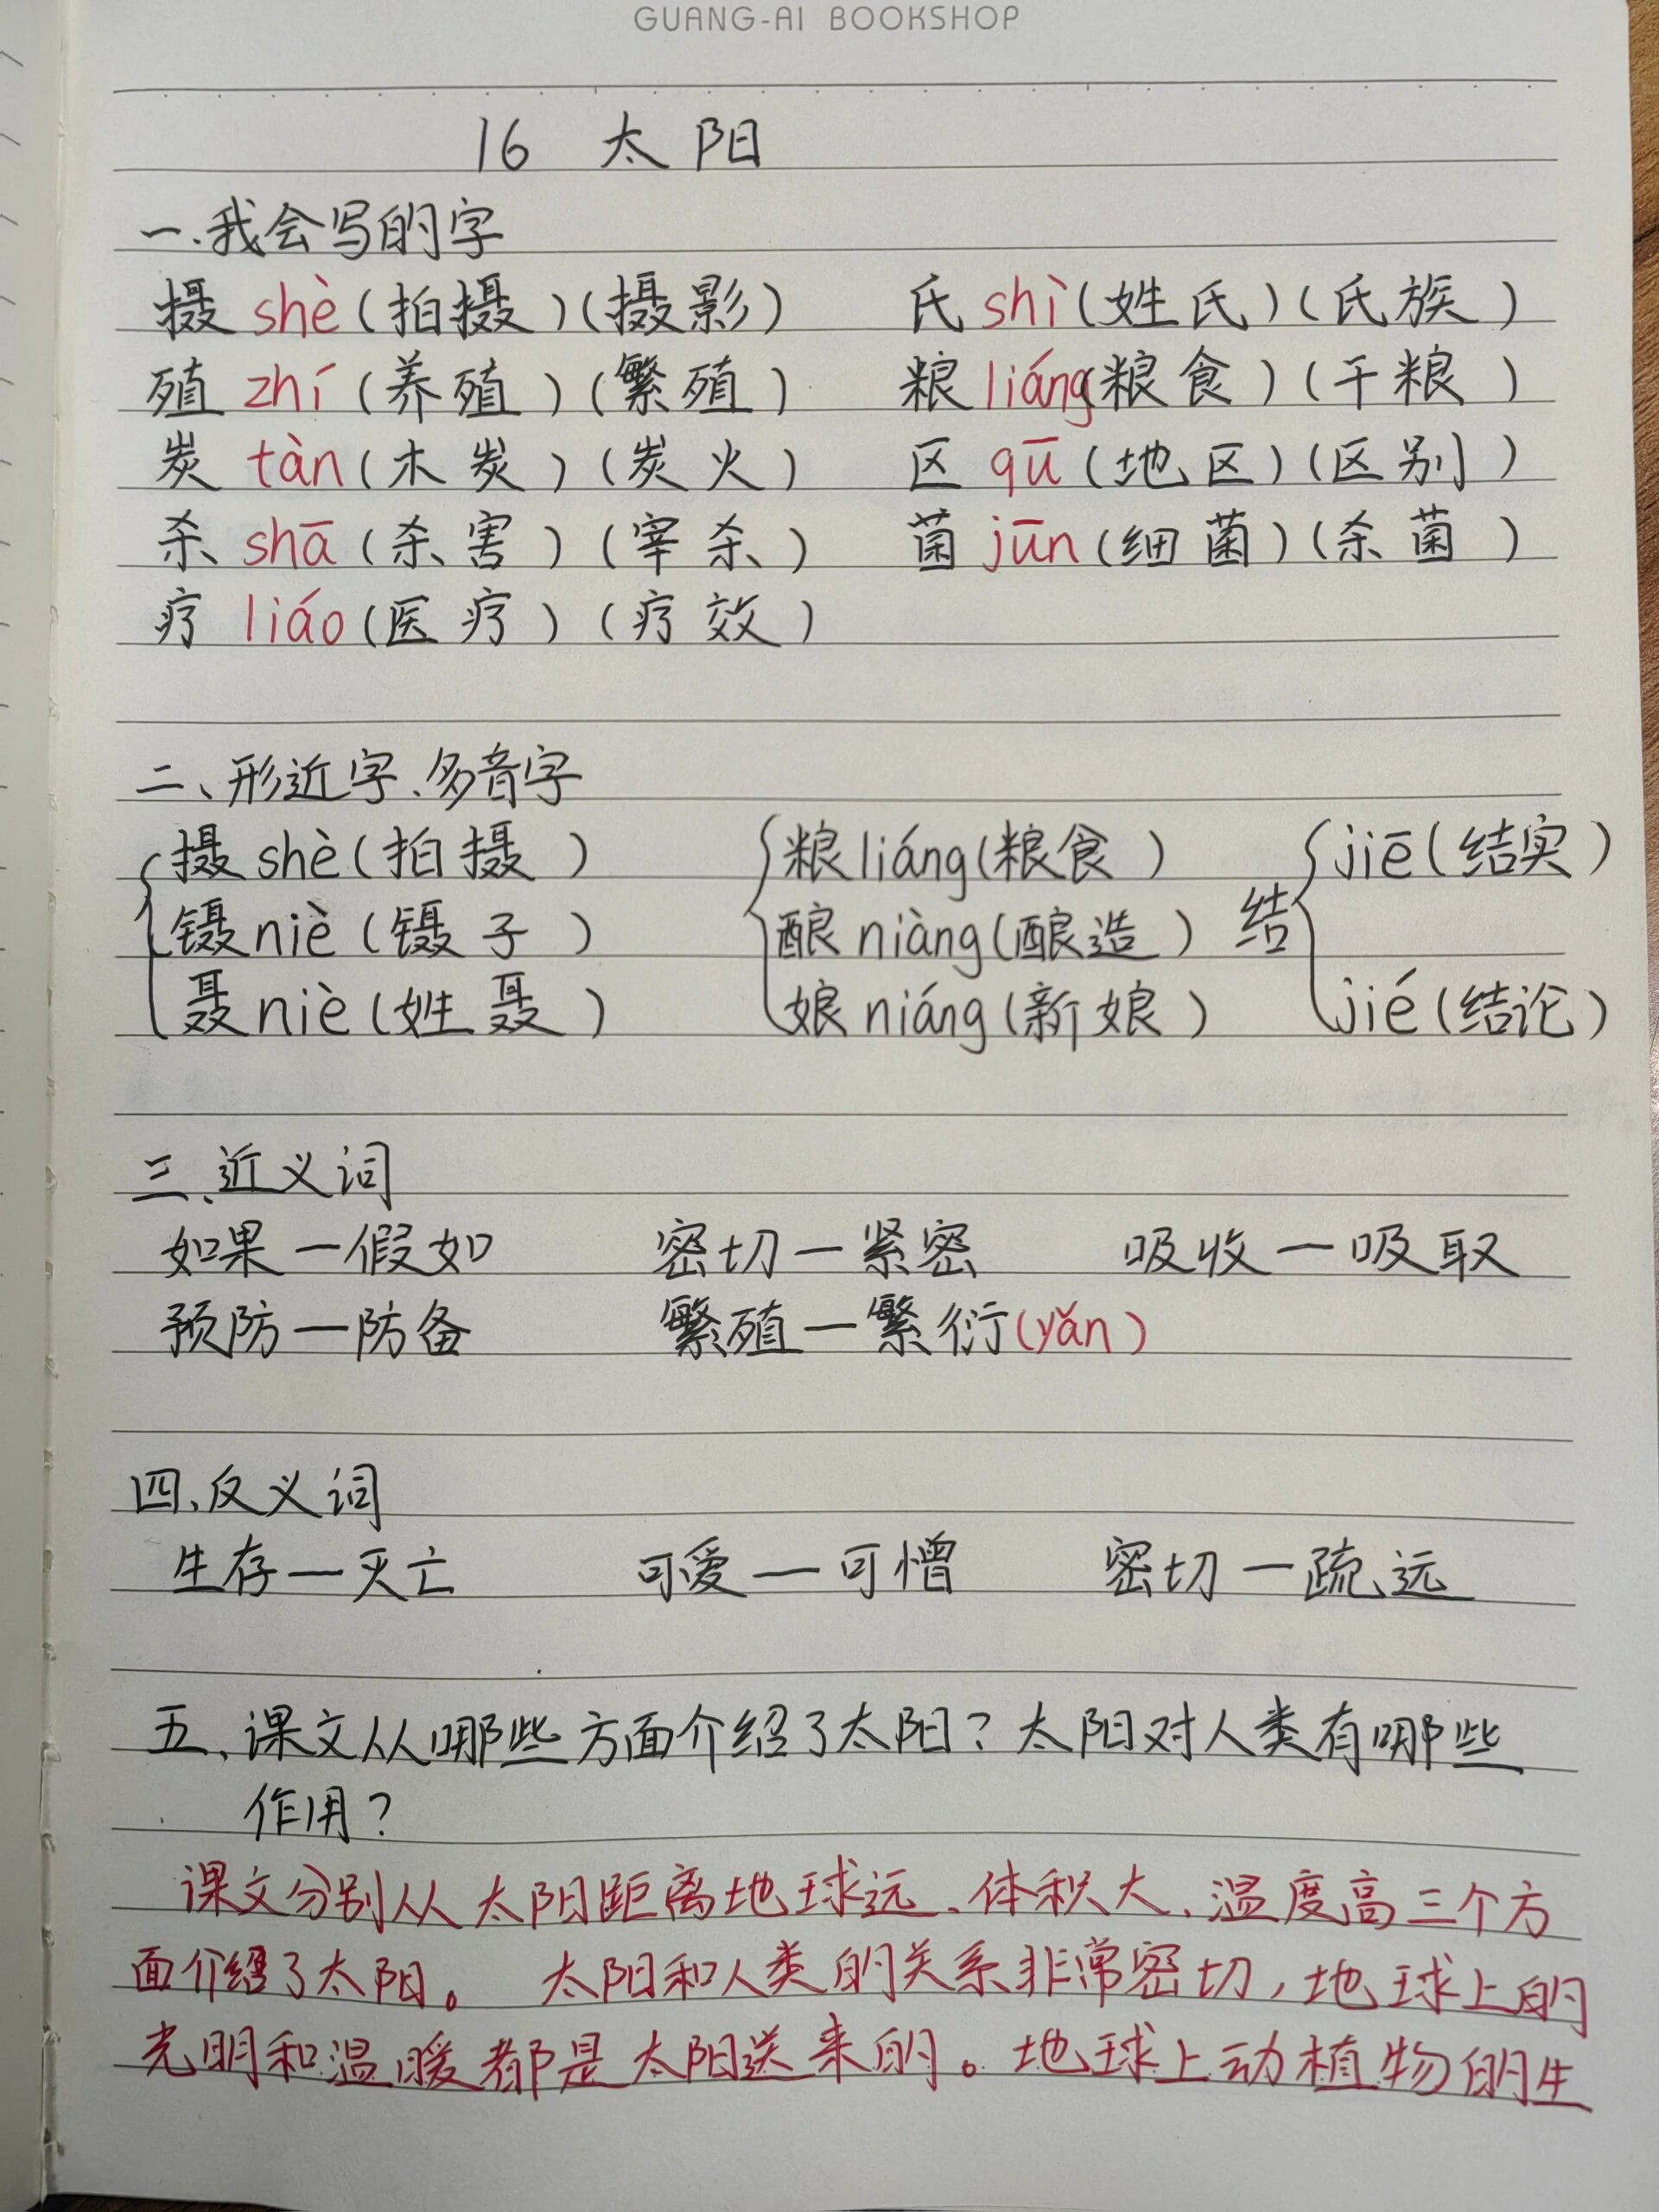 GUANG-AI BOOKSHOP
16 太阳
一、我会写的字
摄 shè(拍摄)(摄影) 氏 shì(姓氏)(氏族)
殖 zhí(养殖)(繁殖) 粮 liáng(粮食)(干粮)
炭 tàn(木炭)(炭火) 区 qū(地区)(区别)
杀 shā(杀害)(宰杀) 菌 jūn(细菌)(杀菌)
疗 liáo(医疗)(疗效)
二、形近字、多音字
摄 shè(拍摄) 粮 liáng(粮食) jiē(结实)
镊 niè(镊子) 酿 niàng(酿造) 结
聂 niè(姓聂) 娘 niáng(新娘) jié(结论)
三、近义词
如果—假如 密切—紧密 吸收—吸取
预防—防备 繁殖—繁衍(yǎn)
四、反义词
生存—灭亡 可爱—可憎 密切—疏远
五、课文从哪些方面介绍了太阳?太阳对人类有哪些
作用?
课文分别从太阳距离地球远、体积大、温度高三个方
面介绍了太阳。 太阳和人类的关系非常密切,地球上的
光明和温暖都是太阳送来的。地球上动植物的生